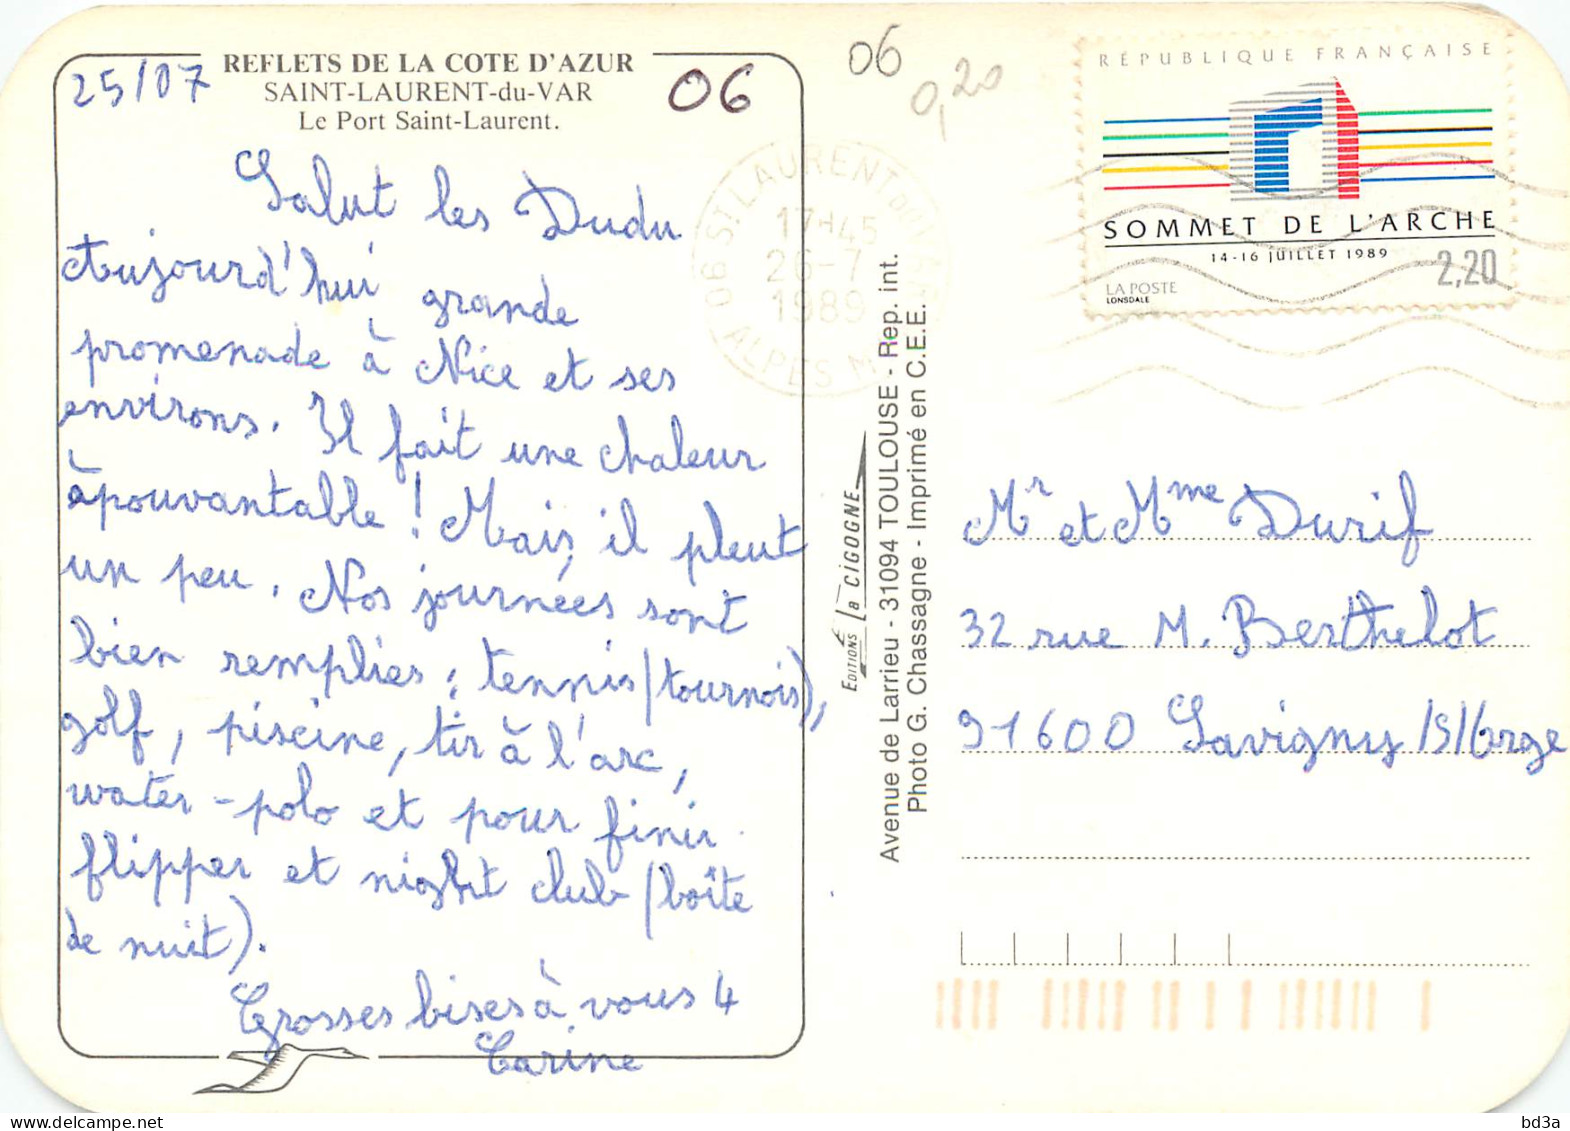 REFLETS DE LA COTE D'AZUR
SAINT-LAURENT-du-VAR
Le Port Saint-Laurent.
25/07
06
Salut les Dudu
Aujourd'hui grande
promenade à Nice et ses
environs. Il fait une chaleur
épouvantable ! Mais il pleut
un peu. Nos journées sont
bien remplies : tennis (tournois),
golf, piscine, tir à l'arc,
water-polo et pour finir
flipper et night club (boîte
de nuit).
Grosses bises à vous 4
Carine
06
0,20
06 ST LAURENT DU VAR
17H45
26-7
1989
ALPES M
RÉPUBLIQUE FRANÇAISE
SOMMET DE L'ARCHE
14-16 JUILLET 1989
2,20
LA POSTE
LONSDALE
EDITIONS La CIGOGNE
Avenue de Larrieu - 31094 TOULOUSE - Rep. int.
Photo G. Chassagne - Imprimé en C.E.E.
Mr et Mme Durif
32 rue M. Berthelot
91600 Savigny /S/Orge
bd3a